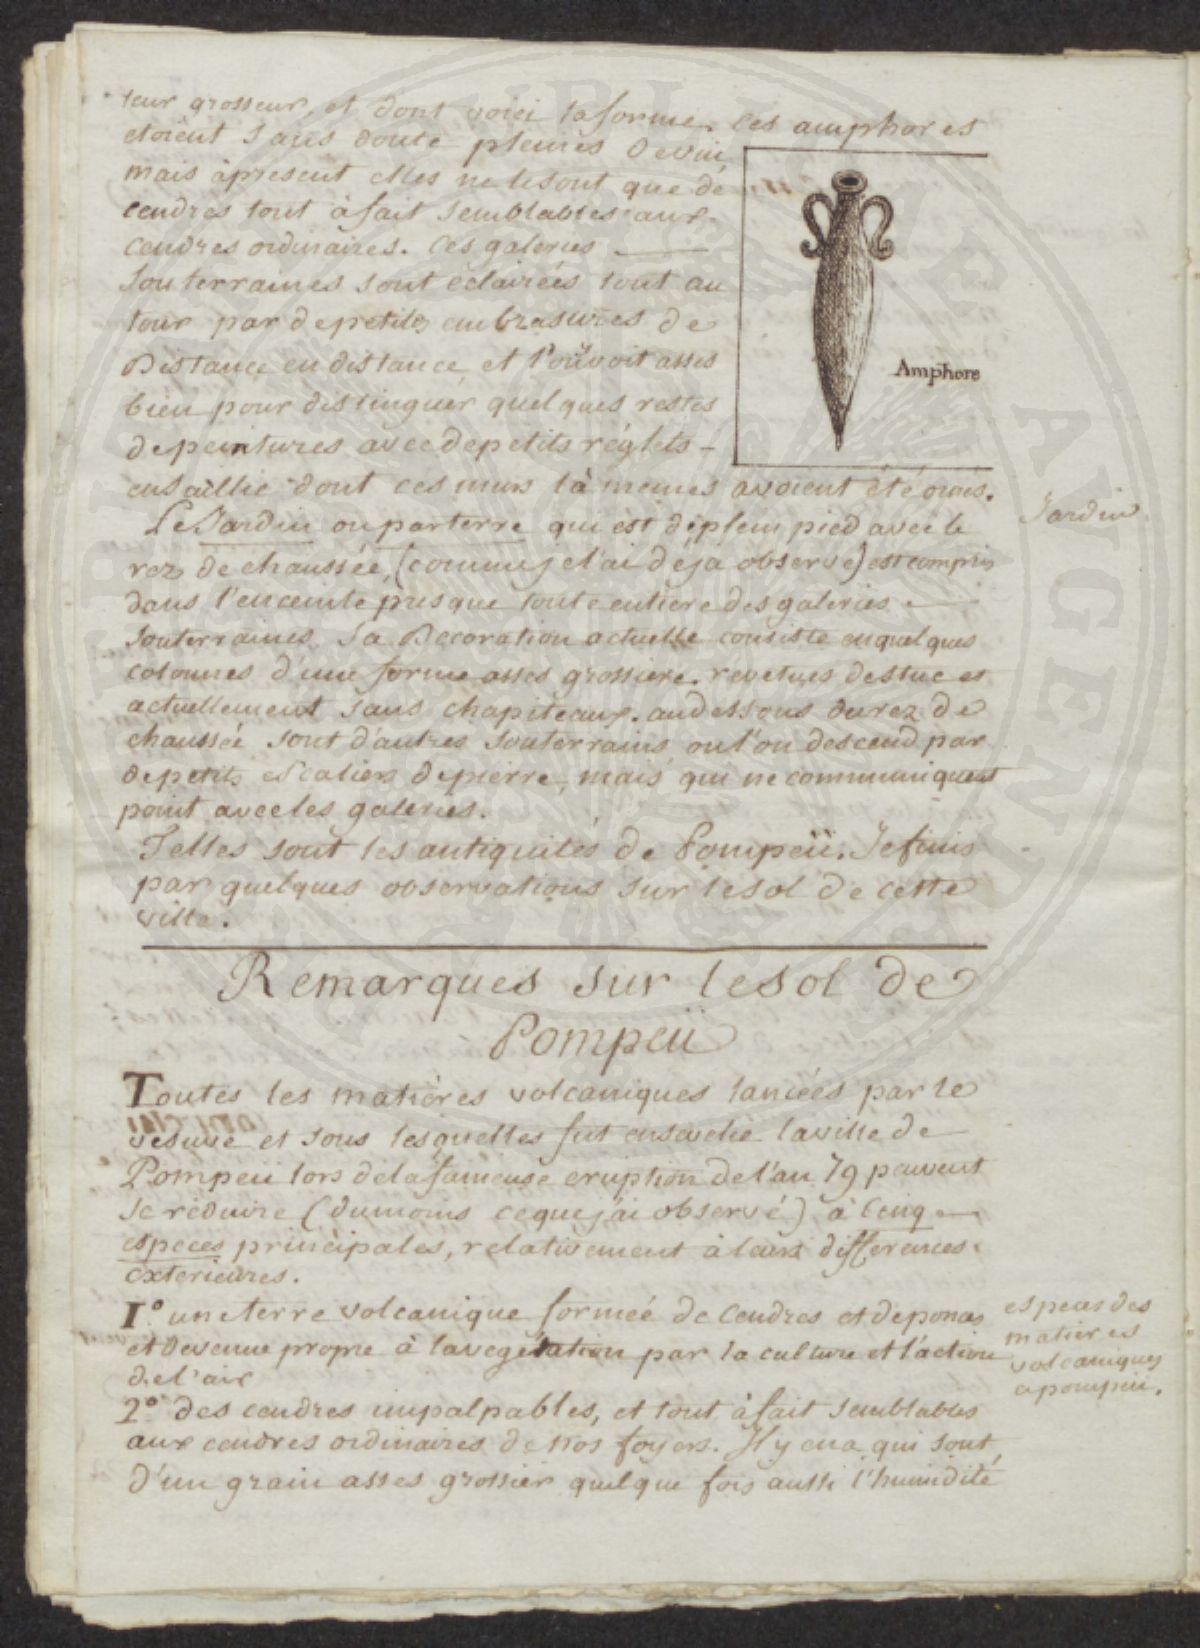 leur grosseur, et dont voici la forme. Ces amphores
etoient sans doute pleines de vin,
mais à present elles ne le sont que de
cendres tout à fait semblables aux
cendres ordinaires. Ces galeries
souterraines sont eclairées tout au
tour par de petites embrasures de
Distance en distance, et l'on y voit asses
bien pour distinguer quelques restes
de peintures avec de petits réglets
en saillie dont ces murs là mêmes avoient été ornés.
Amphore
Le Jardin ou parterre qui est de plein pied avec le
rez de chaussée, (comme je l'ai déja observé) est compris
dans l'enceinte presque toute entiere des galeries
souterraines. Sa Decoration actuelle consiste en quelques
colonnes d'une forme asses grossiere. revetues de stuc et
actuellement sans chapiteaux. au dessous du rez de
chaussée sont d'autres souterrains ou l'on descend par
de petits escaliers de pierre, mais qui ne communiquent
point avec les galeries.
Jardin
Telles sont les antiquités de Pompeïi. Je finis
par quelques observations sur le sol de cette
ville.
Remarques sur le sol de
Pompeïi
Toutes les matières volcaniques lancées par le
vesuve et sous lesquelles fut ensevelie la ville de
Pompeii lors de la fameuse eruption de l'an 79 peuvent
se réduire (du moins ce que j'ai observé) à Cinq
especes principales, relativement à leurs differences
exterieures.
1º. une terre volcanique formée de Cendres et de ponces
et devenue propre à la vegétation par la culture et l'action
de l'air
especes des
matieres
volcaniques
a pompeii.
2º. des cendres impalpables, et tout à fait semblables
aux cendres ordinaires de nos foyers. Il y en a qui sont
d'un grain asses grossier quelque fois aussi l'humidité